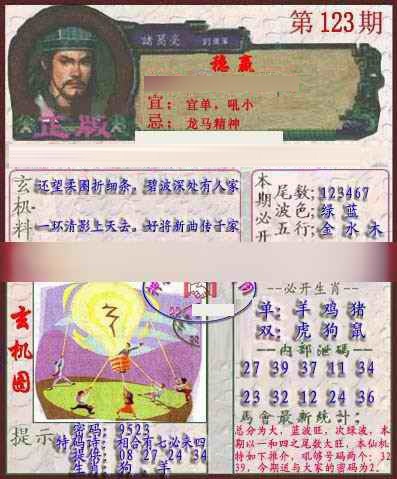 第123期
諸葛亮
稳赢
宜：宜单，吼小
忌：龙马精神
正版
玄机料
还望柔围折细条。碧波深处有人家
一环清影上天去。好将新曲传于家
本期必开
尾数：123467
波色：绿 蓝
五行：金 水 木
玄机图
必开生肖
单：羊 鸡 猪
双：虎 狗 鼠
内部泄码
27 39 37 11 34
23 32 12 24 36
提示
密码：9523
特码诗：相合有七必来四
提供：08 27 24 34
生肖：狗，羊
馬會最新統计：
总分为大，蓝波旺，次绿波，本
期以一和四之尾数大旺，本仙机
特如下推介，吼够号码两个：32
39，今期送与大家的密码为2。